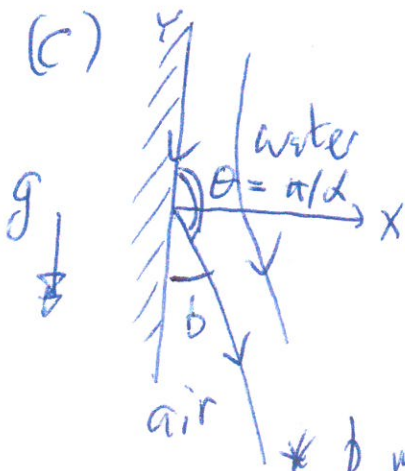 (C)
Y
water
θ = π/α
X
g
b
air